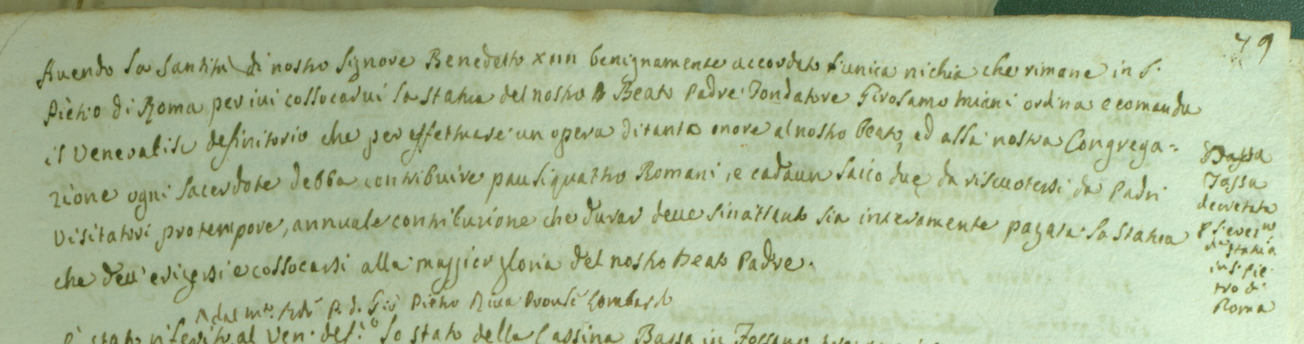 79
Avendo la Santità di nostro Signore Benedetto XIIII benignamente accordato l'unica nichia che rimane in S.
Pietro di Roma per ivi collocarvi la statua del nostro Beato Padre Fondatore Girolamo Miani ordina e comanda
il Venerabile definitorio che per effettuare un opera di tanto onore al nostro beato, ed alla nostra Congrega=
zione ogni sacerdote debba contribuire pauli quattro Romani, e cadaun laico due da riscuotersi da Padri
Visitatori pro tempore, annuale contribuzione che durar deve sin a tanto sia interamente pagata la statua
che dev' erigersi e collocarsi alla maggior gloria del nostro beato Padre.
Tassa
decretata
statua
in S. Pie
tro di
Roma
P. D. Gio Pietro Riva Lombardo
È stato riferito al Ven. def.º lo stato della Cassina Bassa in Fossano